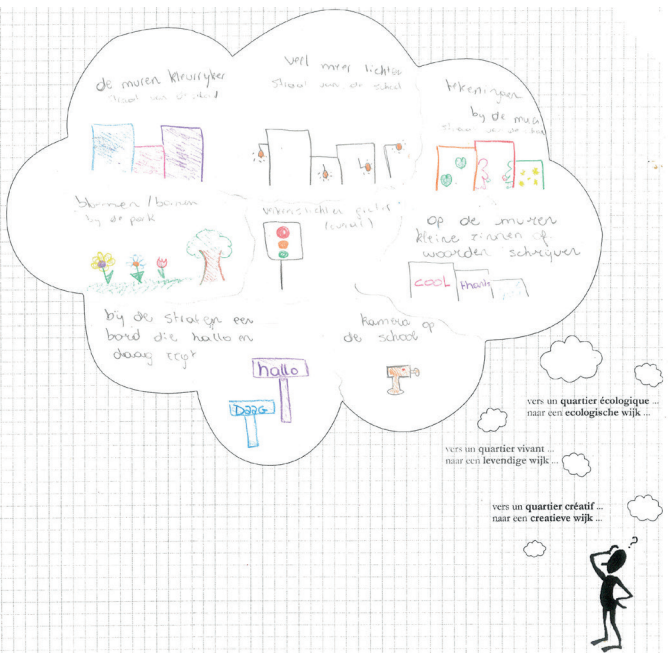 de muren kleurryker
straat van de school
veel meer lichten
straat van de school
tekeningen
by de muur
straat van de school
bloemen / bomen
by de park
op de muren
kleine zinnen of
woorden schrijven
COOL
thanks
bij de straten een
bord die hallo en
daag zegt
hallo
DaaG
kamera op
de school
vers un quartier écologique ...
naar een ecologische wijk ...
vers un quartier vivant ...
naar een levendige wijk ...
vers un quartier créatif ...
naar een creatieve wijk ...
?